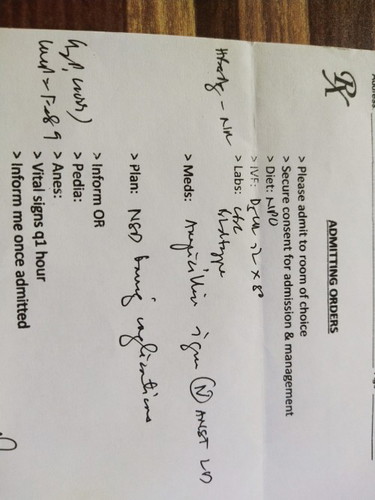 Address
Rx
ADMITTING ORDERS
> Please admit to room of choice
> Secure consent for admission & management
> Diet: NPO
> IVF: D5LR 1L x 8°
> Labs: CBC
Bloodtype
HBsAg - NR
> Meds: Ampicillin 2 gm IV ANST LD
> Plan: NSD barring complications
> Inform OR
> Pedia:
> Anes:
> Vital signs q1 hour
> Inform me once admitted